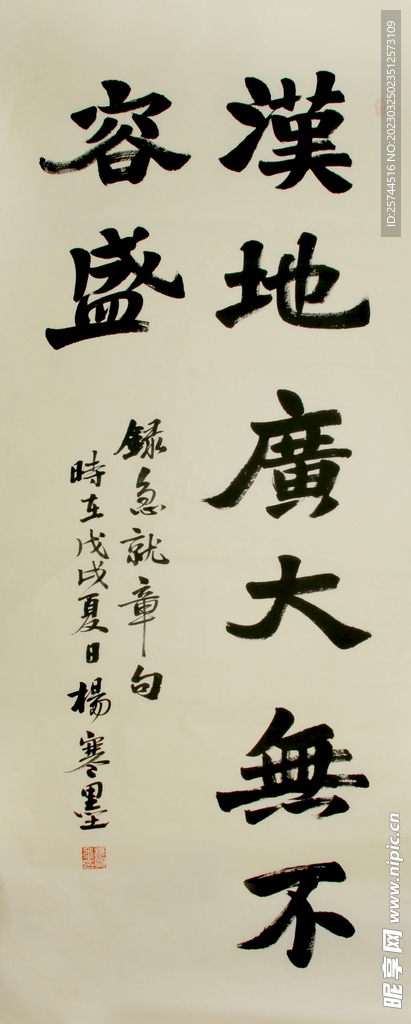 漢地廣大無不
容盛
録急就章句
時在戊戌夏日楊寒墨
ID:25744516 NO:20230325023512573109
昵享网 www.nipic.cn